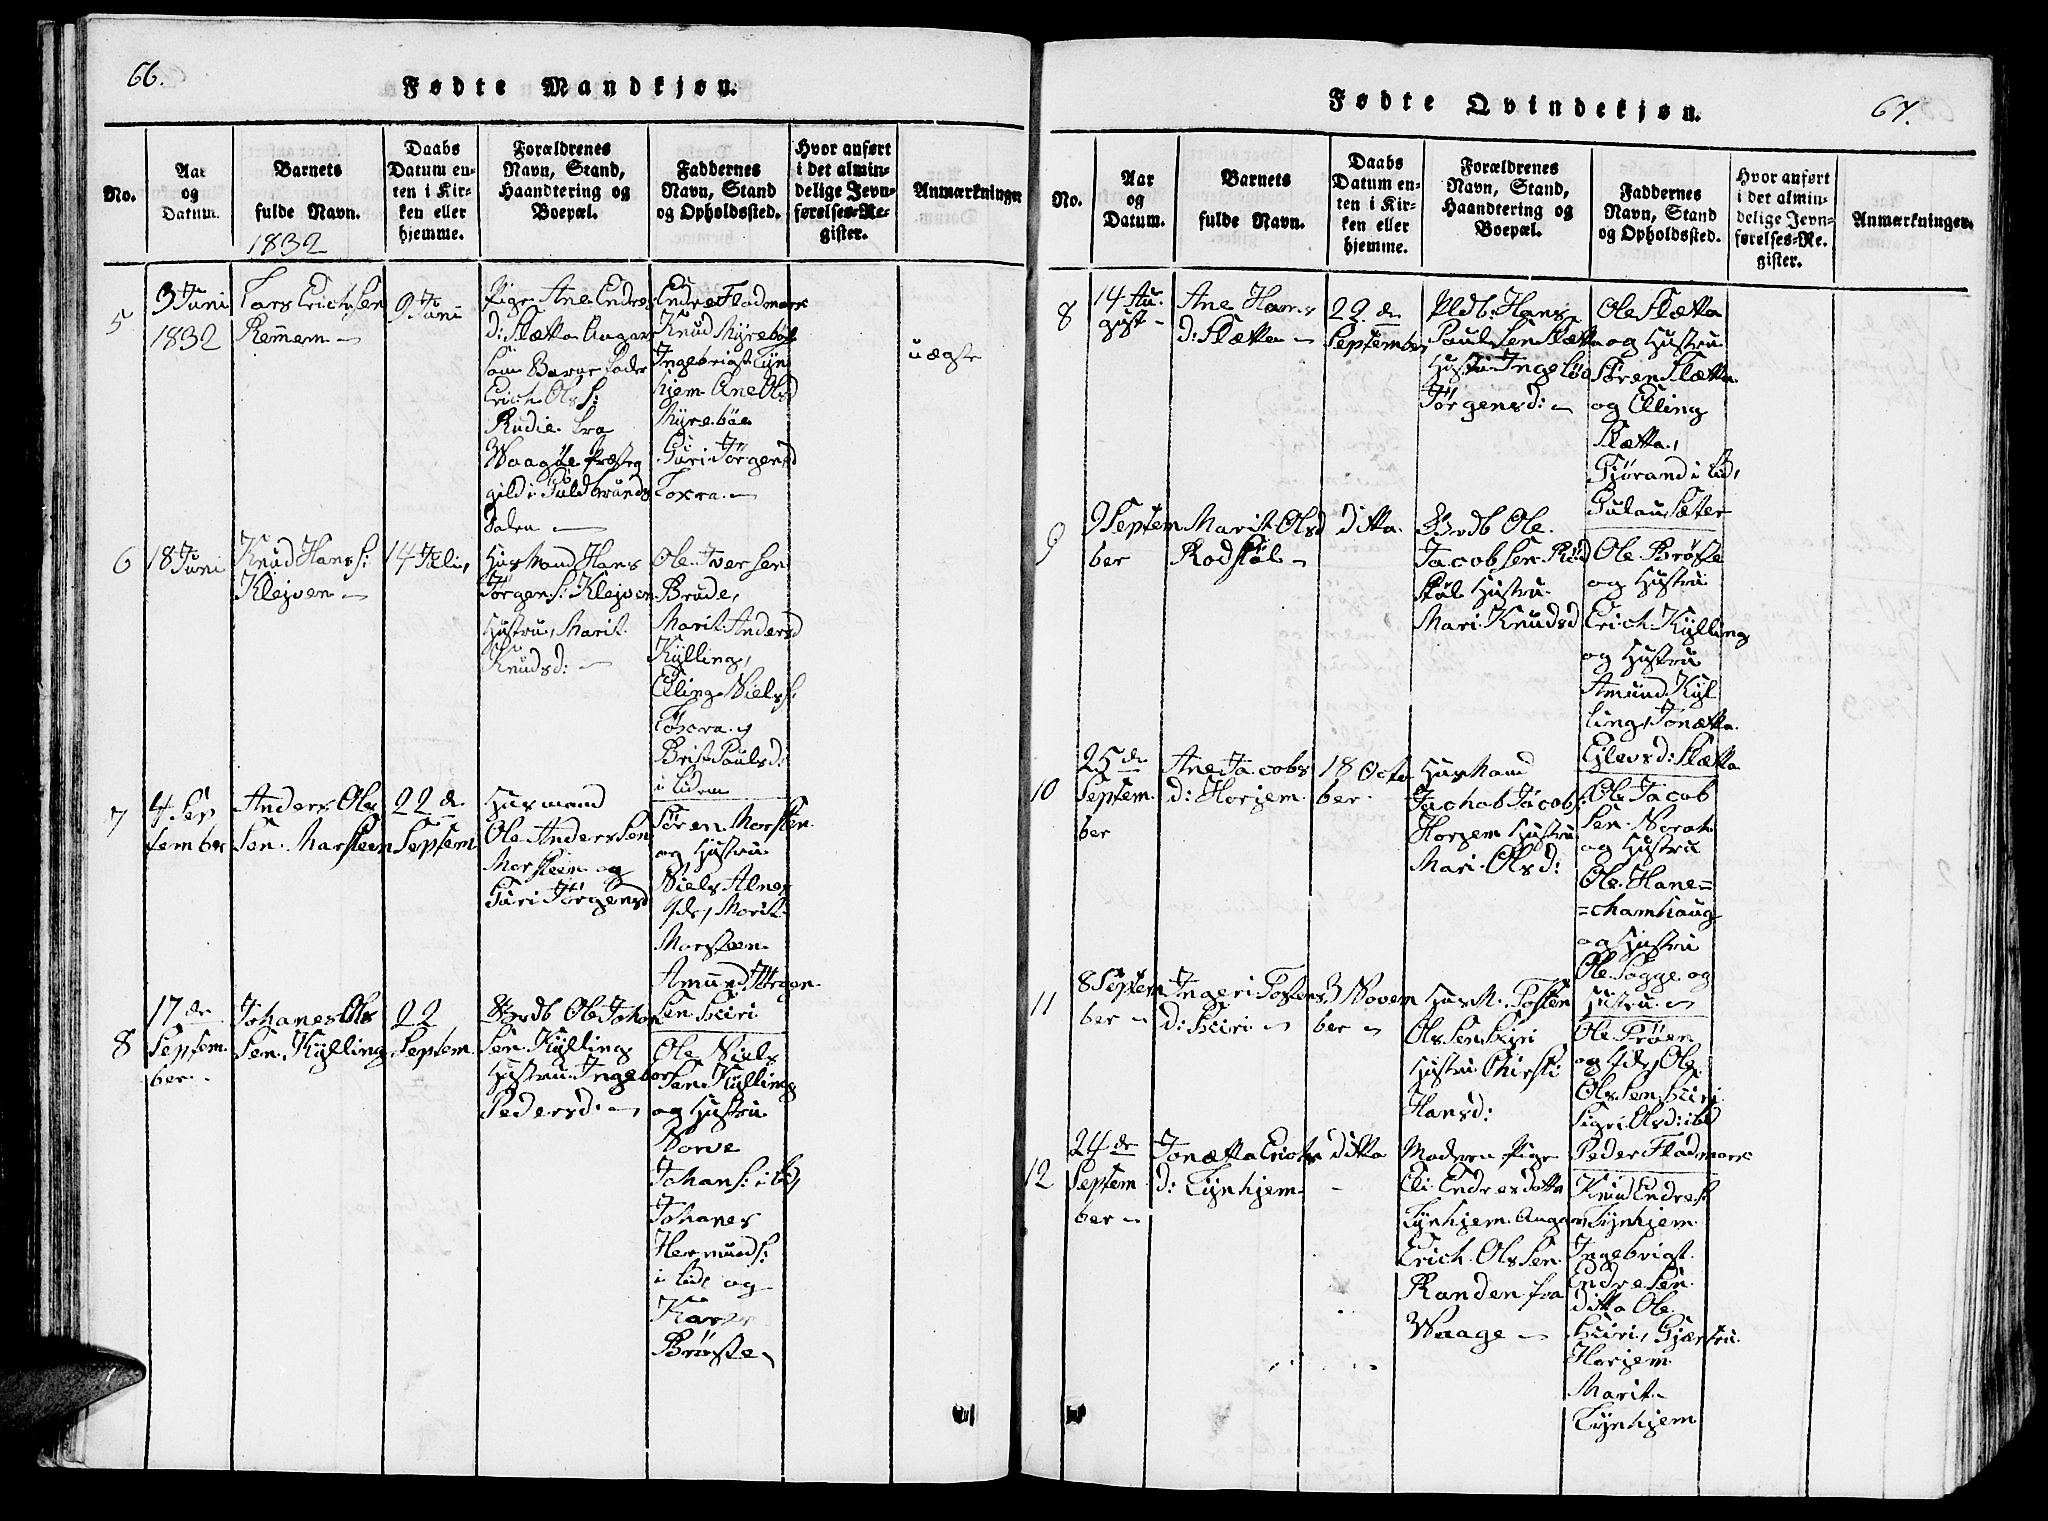 66.
Fødte Mandkjøn.
No.
Aar
og
Datum.
Barnets
fulde Navn.
1832
Daabs
Datum en-
ten i Kir-
ken eller
hjemme.
Forældrenes
Navn, Stand,
Haandtering og
Boepæl.
Faddernes
Navn, Stand
og Opholdssted.
Hvor anført
i det almin-
delige Jevn-
førelses-Re-
gister.
Anmærkninger
5
3 Juni
1832
Lars Erichsen
Remem
9 Juni
Pige Ane Endres
d: Slætta Angav
som Barne fader
Erich Ols S:
Rudie fra
Waage Præste
gild i Guldbrands
Dalen
Endre Fladmark
Knud Myreböe
Ingebrigt Lyn
hjem Ane Olsd
Myreböe
Guri Jörgensd
Toxra
uægte
6
18 Juni
Knud Hans S:
Klejven
14 Juli,
Husmand Hans
Jörgen S: Klejven
Hustru, Marit
Knudsd:
Ole Iversen
Brude,
Marit Andersd
Kylling,
Elling Niels S:
Toxra
Brit Paulsd:
i Lidem
7
4 Sep
tember
Anders Ols
Sen Marsteen
22 de
Septem
Husmand
Ole Anders Sen
Morsteen og
Guri Jörgensd
Sören Morsten
og Hustru
Niels Alnes
Marit
Morsteen
Amund Jörgen
Sen Suri
8
17 de
Septem
ber
Johanes Ols
Sen Kylling
22
Septem
Ole Johan
Sen Kylling
Hustru Ingebor
Pedersd:
Ole Niels
Sen Kylling
og Hustru
Norve
Johans: ibd
Johanes
Hermunds:
i Lid og
Kari
Bröste
67.
Fødte Qvindekjøn.
No.
Aar
og
Datum.
Barnets
fulde Navn.
Daabs
Datum en-
ten i Kir-
ken eller
hjemme.
Forældrenes
Navn, Stand,
Haandtering og
Boepæl.
Faddernes
Navn, Stand
og Opholdssted.
Hvor anført
i det almin-
delige Jevn-
førelses-Re-
gister.
Anmærkninger.
8
14 Au-
gust
Ane Hans
d: Slætta
22 de
September
Pldb: Hans
Paul Sen Slætta
Hustru Ingeløv
Jörgensd:
Ole Slætta
og Hustru
Sören Slætta
og Elling
Slætta,
Gjörand i Lid,
Gulau Sæter
9
9 Septem
ber
Marit Olsd
Rodstöl
ditta
Ole
Jacobsen Röd
Stöl Hustru
Mari Knudsd
Ole Bröste
og Hustru
Erich Kylling
og Hustru
Amund Kyl
ling, Jonætta
Ejlevsd: Slætta
10
25 de
Septem
ber
Ane Jacobs
d: Horjem
18 Octo
ber
Husmand
Jachob Jacobs:
Horjem Hustru
Mari Olsd:
Ole Jacob
Sen Norah
og Hustru
Ole Hane=
=chamhaug
og Hustru
Ole Sogge og
Hustru
11
8 Septem
ber
Ingeri Tostens
d: Suri
3 Novem
ber
Husm. Tosten
Ols Sen Suri
Hustru Chirsti
Hansd:
Ole Pröen
og Ole
Ols Sen Suri
Sigri Olsd: ibd
12
24 de
Septem
ber
Jonætta Erichs
d: Lynhjem
ditta
Moderen Pige
Eli Endresdotter
Lynhjem Angav
Erich Ols Sen
Randen fra
Waage
Peder Fladmark
Knud Endres:
Lynhjem
Ingebrigt
Endre Sen
ditta Ole
Suri, Gjærtru
Horjem
Marit
Lynhjem